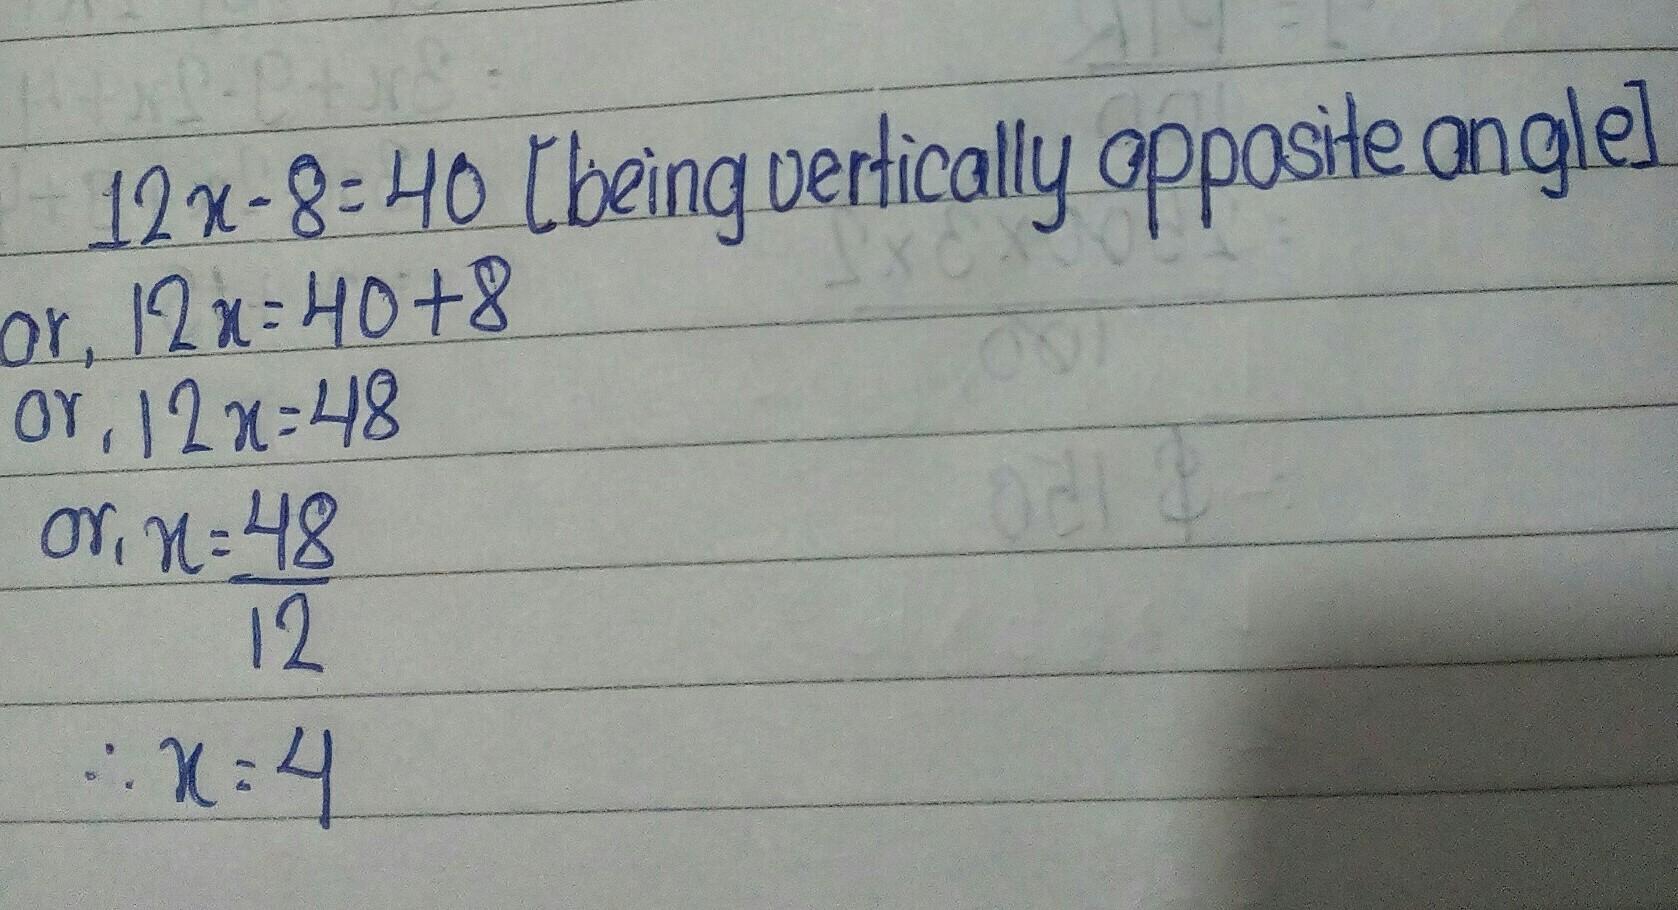 12x-8=40 [being vertically opposite angle]
or, 12x=40+8
or, 12x=48
or, x=48
12
∴ x=4